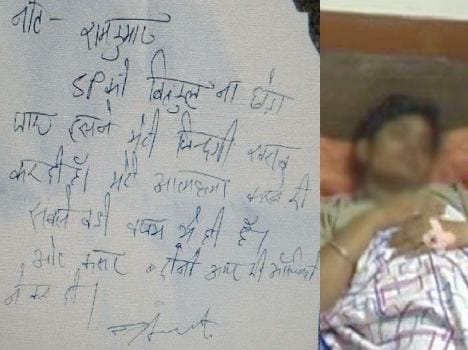 नोट - रामकुमार
SP को बिल्कुल ना छोड़ा
जाए इसने मेरी जिन्दगी खराब
कर दी है। मेरी आत्महत्या करने की
सबसे बडी वजह ये ही है।
और कसर
ने कर दी।